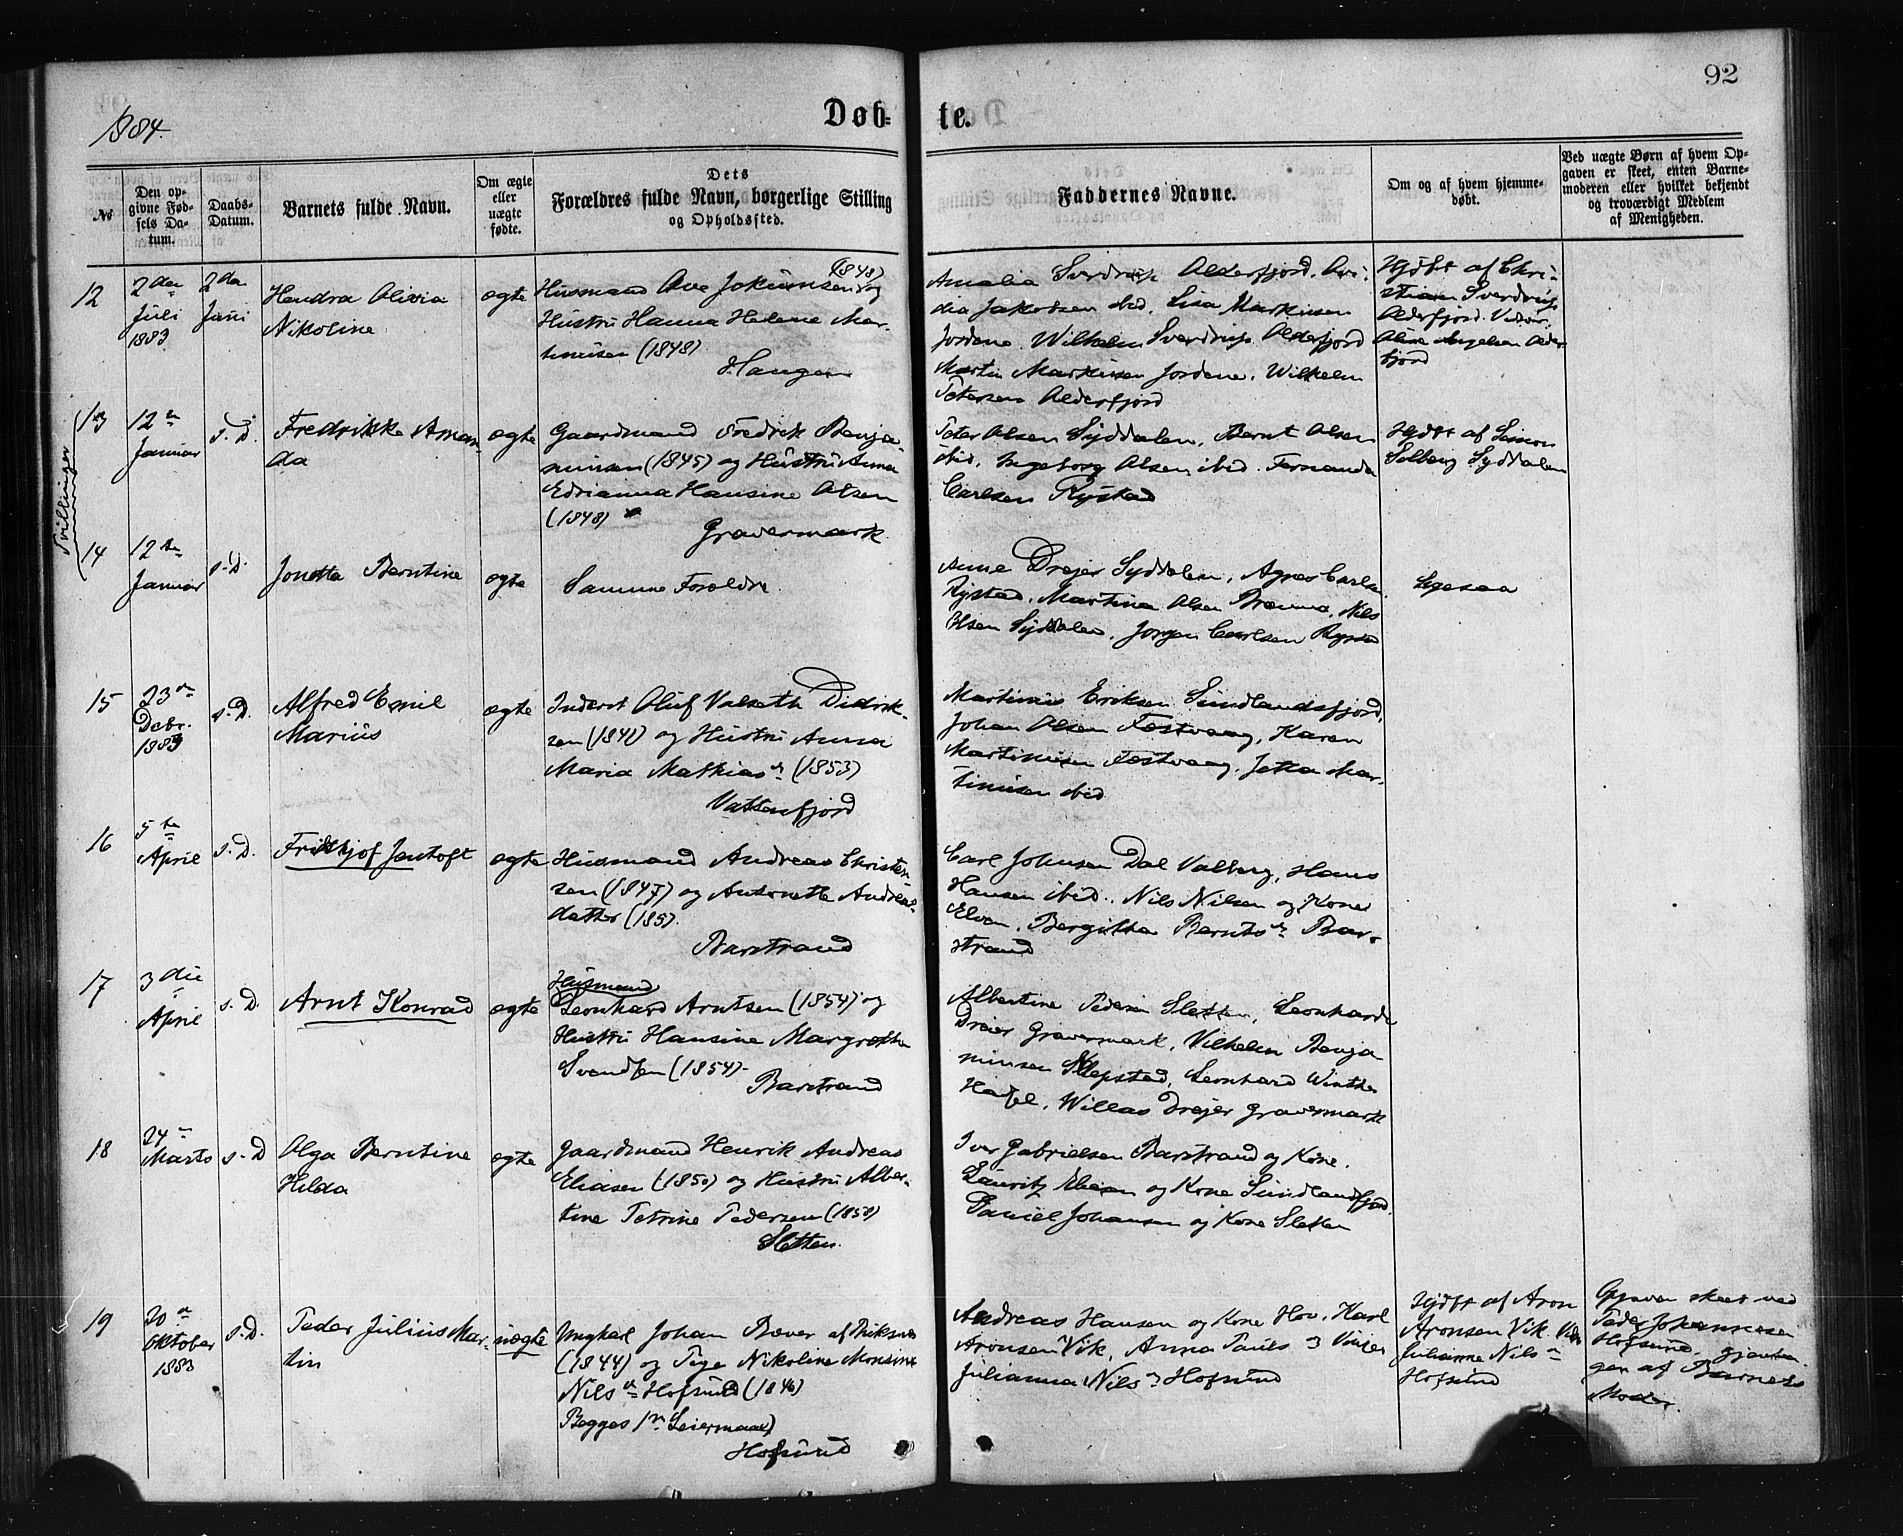 92
1884.
Døb- te.
№
Den op-
givne Fød-
sels Da-
tum.
Daabs-
Datum.
Barnets fulde Navn.
Om ægte
eller
uægte
fødte.
Dets
Forældres fulde Navn, borgerlige Stilling
og Opholdssted.
Faddernes Navne.
Om og af hvem hjemme-
døbt.
Ved uægte Børn af hvem Op-
gaven er skeet, enten Barne-
moderen eller hvilket bekjendt
og troværdigt Medlem
af Menigheden.
12
2den
Juli
1883
2den
Juni
Hendra Olivia
Nikoline
ægte
(1848)
Husmand Ove Jakobsen og
Hustru Hanna Helene Mar-
tinusen (1848)
Haugen
Amalia Sverdrup Alderfjord. Ovi-
dia Jakobsen ibid. Lisa Markusen
Jordene. Wilhelm Sverdrup Alderfjord
Martin Markusen Jordene. Wilhelm
Petersen Alderfjord
Hjdbt af Chri-
stian Sverdrup
Alderfjord. Vidner.
Aline Angelsen Alder-
fjord
Tvillinger
13
12te
Januar
s. D.
Fredrikke Aman-
da
ægte
Gaardmand Fredrik Benja-
minsen (1845) og Hustru Anna
Edrianna Hansine Olsen
(1848)
Gravermark
Peter Olsen Syddalen, Bernt Olsen
ibid. Ingeborg Olsen ibid. Fernanda
Carlsen Rystad
Hjdbt af Simon
Solberg Syddalen
14
12te
Januar
s. D.
Jonetta Berntine
ægte
Samme Forældre
Anne Drejer Syddalen, Agnes Carlsen
Rystad. Martina Olsen Brenna. Nils
Olsen Syddalen, Jørgen Carlsen Rystad
Ligesaa
15
23de
Debr.
1883
s. D.
Alfred Emil
Marius
ægte
Inderst Oluf Valseth Didrik-
sen (1841) og Hustru Anna
Maria Mathiasdr (1853)
Vatterfjord
Martinus Eriksen Sundlandsfjord,
Johan Olsen Festvaag, Karen
Martinusen Festvaag. Jetta Mar-
tinusen ibid
16
5te
April
s. D.
Fridthjof Jentoft
ægte
Husmand Andreas Christen-
sen (1847) og Antonette Andreas-
datter (185).
Barstrand
Carl Johnsen Dal Valberg, Hans
Hansen ibid., Nils Nilsen og Kone
Elven, Bergitte Berntsdr Bar-
strand
17
3die
April
s. D.
Arnt Konrad
ægte
Husmand
Leonhard Arntsen (1854) og
Hustru Hansine Margrethe
Svendsen (1854)
Barstrand
Albertine Pedersen Sletten, Leonharda
Dreier Gravermark, Vilhelm Benja
minsen Klepstad, Leonhard Winther
Hassel, Willas Drejer Gravermark
18
24de
Marts
s. D
Olga Berntine
Hilda
ægte
Gaardmand Henrik Andreas
Eliasen (1850) og Hustru Alber-
tine Petrine Pedersen (1858)
Sletten.
Iver Gabrielsen Barstrand og Kone.
Lauritz Eliasen og Kone Sundlandsfjord.
Daniel Johansen og Kone Sletten
19
20de
Oktober
1883
s. D.
Peder Julius Mar-
tin
uægte
Ungkarl Johan Bæver af
(1844) og Pige Nikoline Monsine
Nilsdr Hofsund (1846)
Begges 1ste Leiermaal
Hofsund
Andreas Hansen og Kone Hov. Karl
Aronsen Vik, Anna Pauls
Julianna Nilsdr Hofsund
Hjdbt af Aron
Aronsen Vik.
Julianne Nilsdr
Hofsund
Opgaven skeet ved
Peder Johannesen
Hofsund. gjenta-
gen af Barnets
Moder.